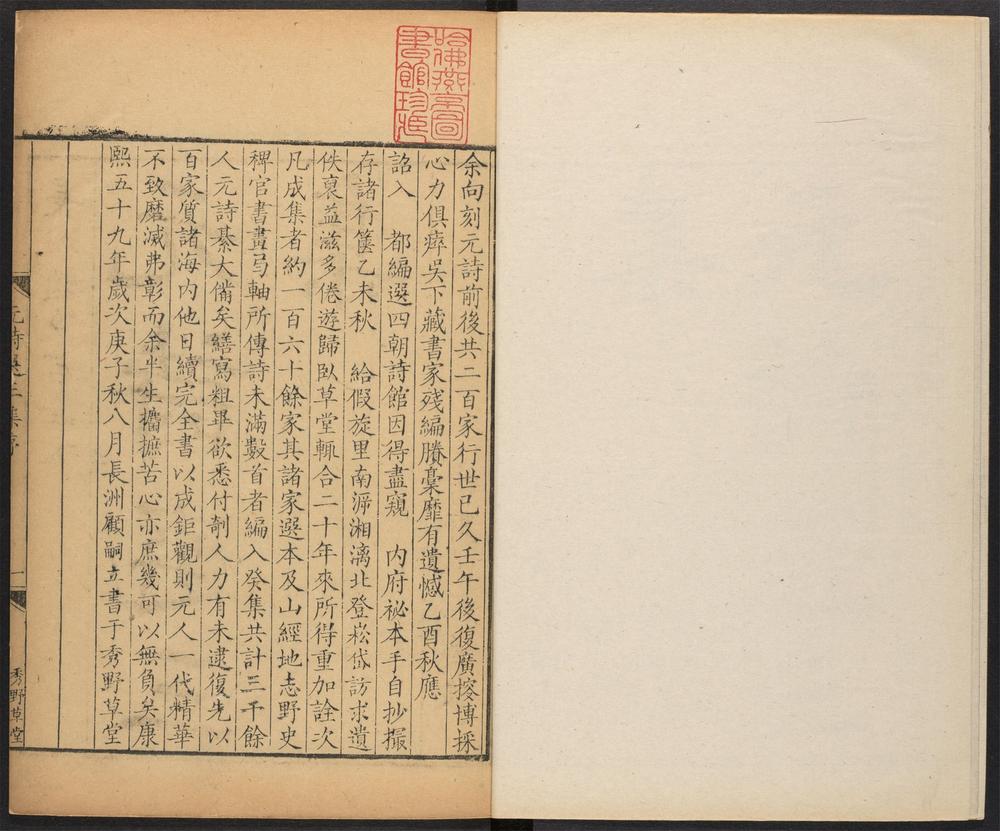 哈佛燕京圖
書館珍藏
余向刻元詩前後共二百家行世已久壬午後復廣搜博採
心力俱瘁吳下藏書家殘編賸稾靡有遺憾乙酉秋應
詔入 都編選四朝詩館因得盡窺 內府祕本手自抄撮
存諸行篋乙未秋 給假旋里南㴑湘漓北登崧岱訪求遺
佚裒益滋多倦遊歸臥草堂輒合二十年來所得重加詮次
凡成集者約一百六十餘家其諸家選本及山經地志野史
稗官書畫弓軸所傳詩未滿數首者編入癸集共計三千餘
人元詩綦大備矣繕寫粗畢欲悉付剞人力有未逮復先以
百家質諸海內他日續完全書以成鉅觀則元人一代精華
不致磨滅弗彰而余半生攟摭苦心亦庶幾可以無負矣康
熙五十九年歲次庚子秋八月長洲顧嗣立書于秀野草堂
元詩選三集序
一
秀野草堂